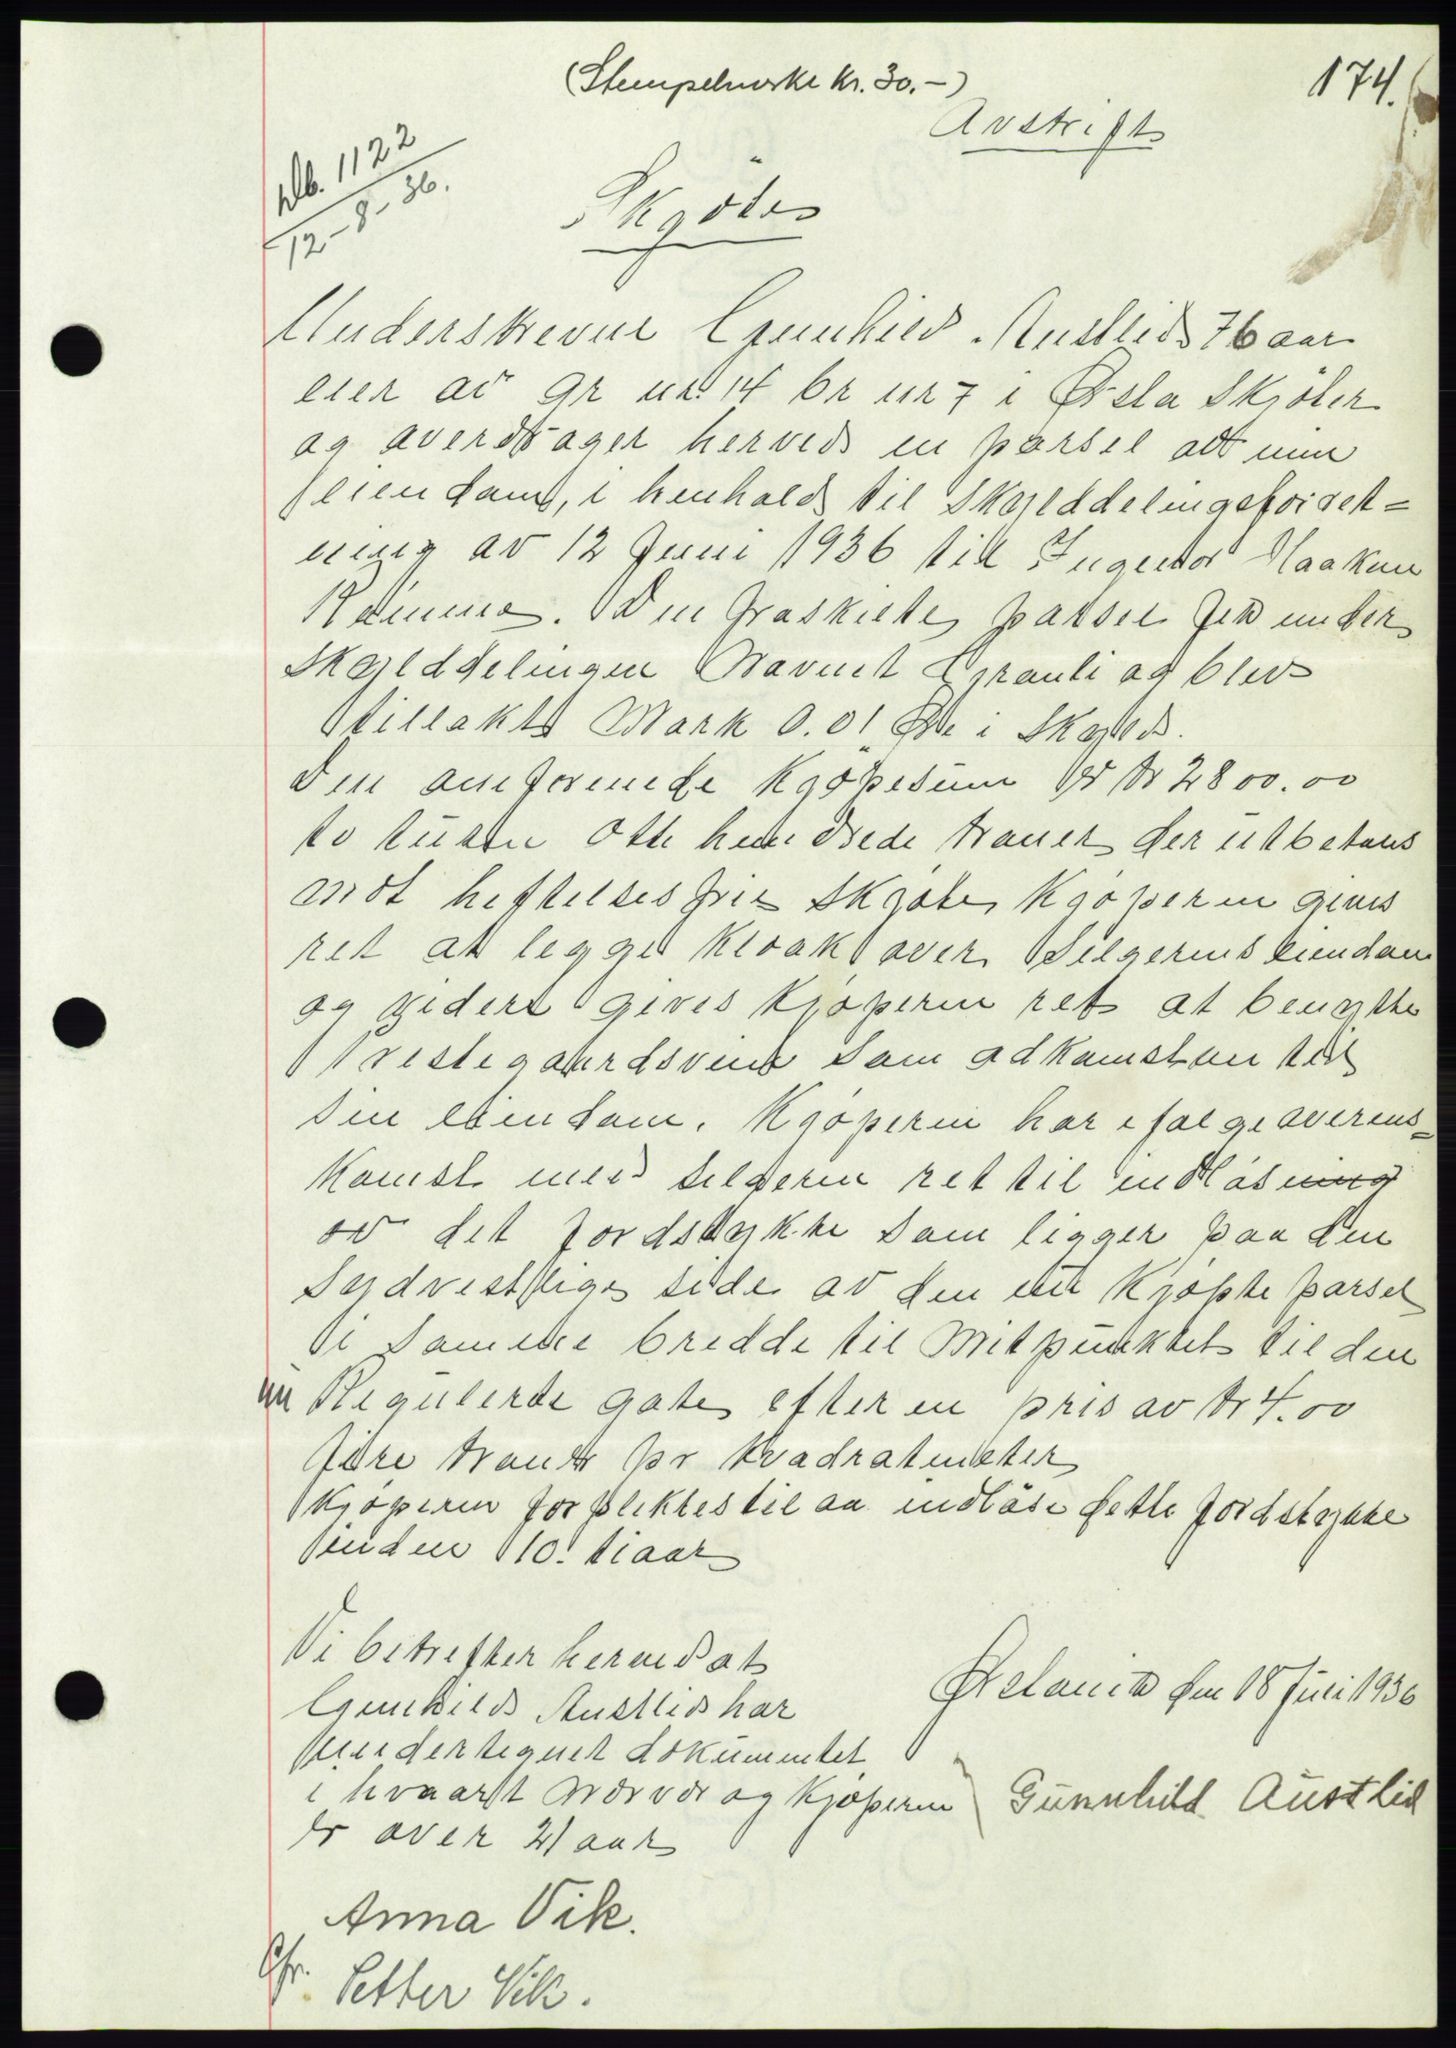 (Stempelmerke kr. 30.-)
174.
Avskrift
Db. 1122
12-8-36.
Skjöte
Underskrevne Gunhild Austlid 76 aar
eier av gr nr. 14 br nr 7 i Ørsta Skjöter
og averdrager herved en parsel av min
eiendom, i henhold til Skylddelingsforret=
ning av 12 Juni 1936 til Ingeniør Haakon
Den fraskilte parsel fik under
Skylddelingen Navnet Granli og blev
tillakt Mark 0.01 Øre i Skyld.
Den omforenede Kjøpesum er kr 2800.00
to tusen otte hundrede kroner der utbetales
mot heftelsesfrie Skjøte Kjøperen gives
ret at legge Kloak over Selgerens eiendom
og videre gives Kjøperen ret at benytte
Prestegaardsveien som adkomsten til
sin eiendom. Kjøperen har ifølge overens=
komst med selgeren ret til indløsning
av det jordstykke som ligger paa den
Sydvestlige side av den nu Kjøpte parsel
i samme bredde til Mitpunktet til den
nu Regulerte gate efter en pris av kr 4.00
fire kroner pr kvadratmeter
Kjøperen forpliktes til aa indløse dette jordstykke
inden 10. ti aar
Vi bekrefter herved at
Gunhild Austlid har
undertegnet dokumentet
i hvaart nærvær og Kjøperen
er over 21 aar
Ørstavik den 18 Juni 1936
Gunnhild Austlid
Anna Vik.
Chr. Petter Vik.